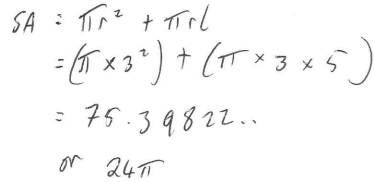 SA = πr² + πrl
= (π × 3²) + (π × 3 × 5)
= 75.39822..
or 24π